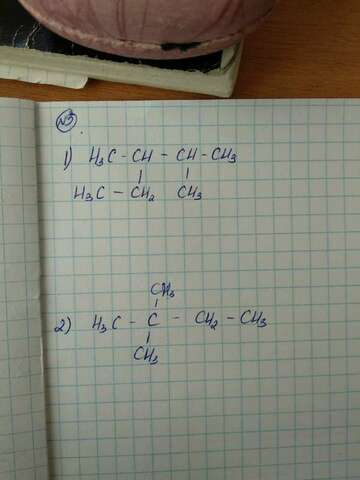 №3.
1) H₃C - CH - CH - CH₃
H₃C - CH₂ CH₃
CH₃
2) H₃C - C - CH₂ - CH₃
CH₃